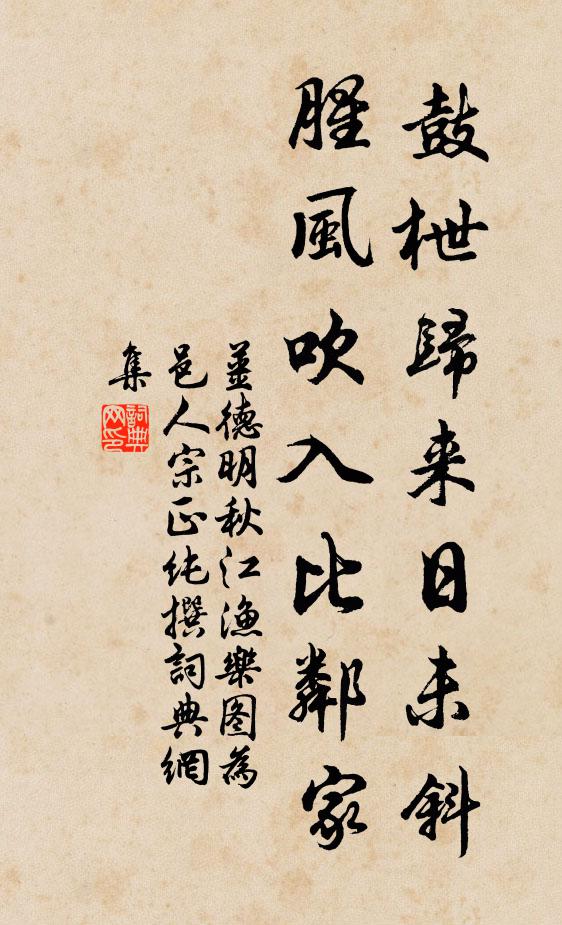 鼓枻歸来日未斜
腥風吹入比鄰家
姜德明秋江漁樂图為
邑人宗正纯撰詞典網
集
詞典网印